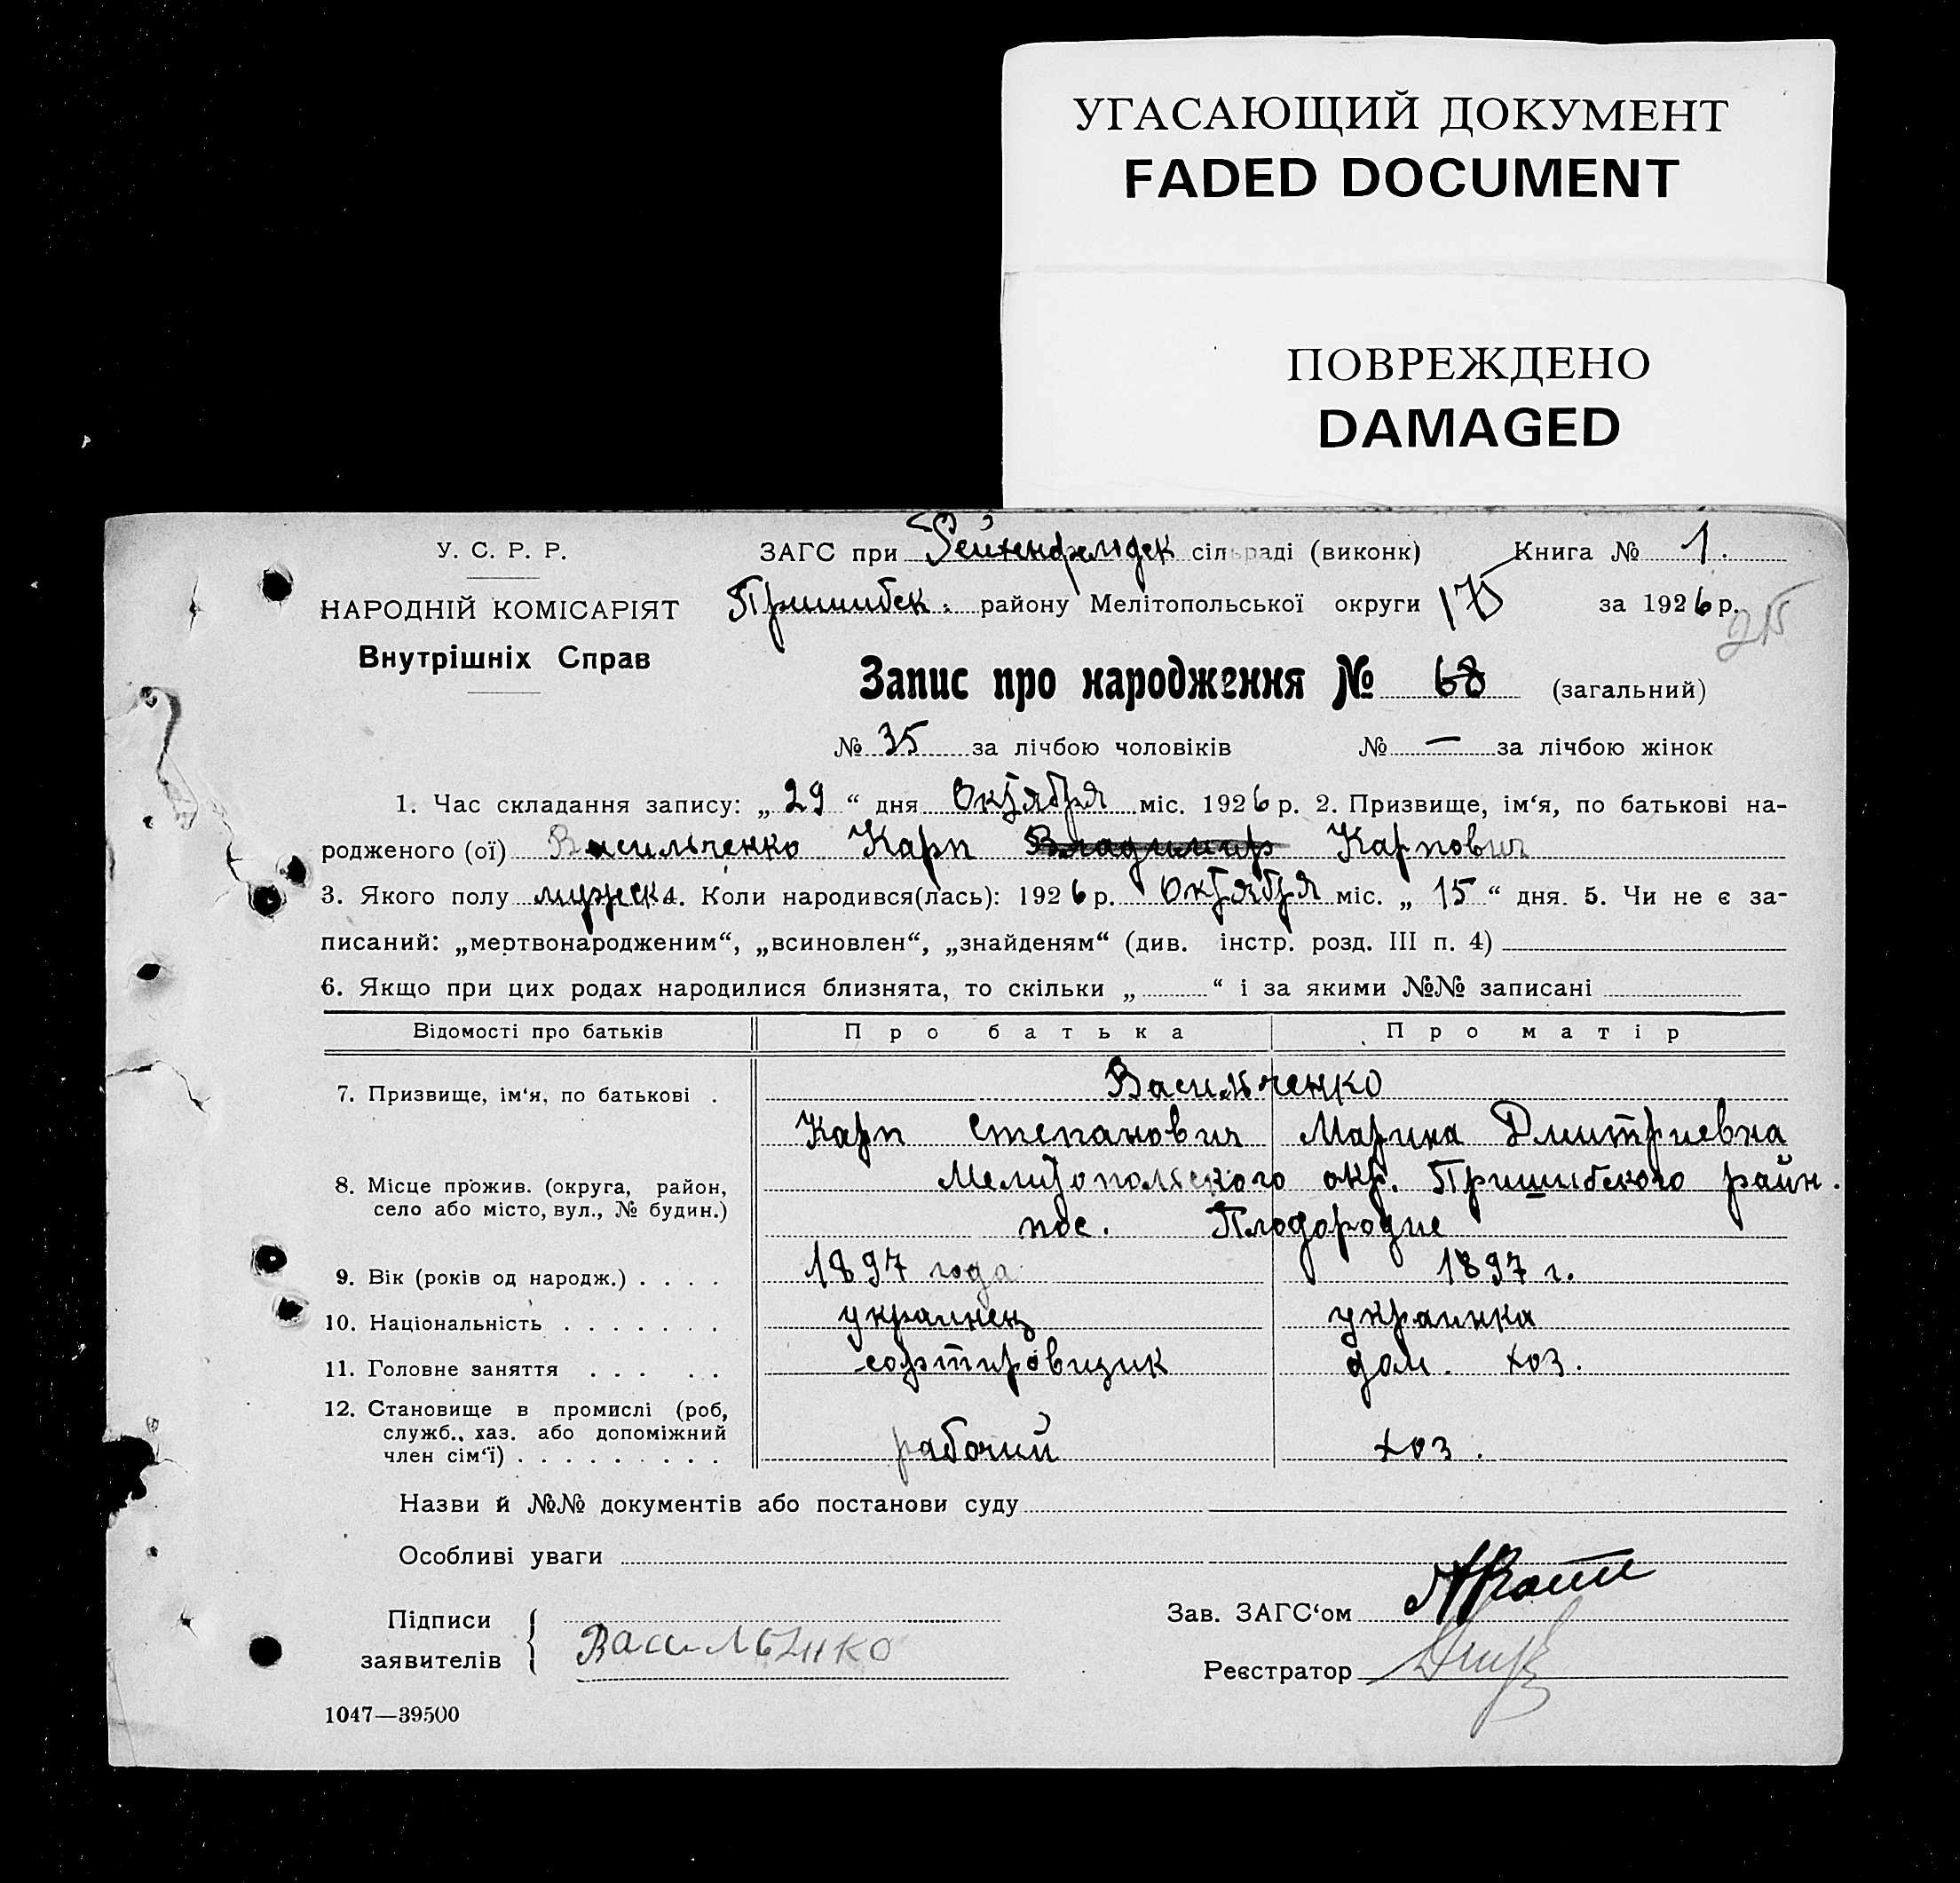 УГАСАЮЩИЙ ДОКУМЕНТ
FADED DOCUMENT
ПОВРЕЖДЕНО
DAMAGED
У. С. Р. Р.
НАРОДНІЙ КОМІСАРІЯТ
Внутрішніх Справ
ЗАГС при Рейхенфельдек сільраді (виконк) Книга № 1.
Пришибск. району Мелітопольської округи 175 за 1926 р.
215
Запис про народження № 68 (загальний)
№ 35 за лічбою чоловіків № — за лічбою жінок
1. Час складання запису: „ 29 “ дня Октября міс. 1926 р. 2. Призвище, ім‘я, по батькові на-
родженого (ої) Васильченко Карп Владимир Карпович
3. Якого полу мужск 4. Коли народився(лась): 1926 р. Октября міс. „ 15 “ дня. 5. Чи не є за-
писаний: „мертвонародженим“, „всиновлен“, „знайденям“ (див. інстр. розд. III п. 4)
6. Якщо при цих родах народилися близнята, то скільки „ “ і за якими №№ записані
Відомості про батьків Про батька Про матір
7. Призвище, ім‘я, по батькові . Васильченко
Карп Степанович Марина Дмитриевна
8. Місце прожив. (округа, район, село або місто, вул., № будин.) Мелитопольского окр. Пришибского район.
пос. Плодородие
9. Вік (років од народж.) . . . . 1897 года 1897 г.
10. Національність . . . . . . . украинец украинка
11. Головне заняття . . . . . сортировщик дом. хоз.
12. Становище в промислі (роб,
служб., хаз. або допоміжний
член сім‘ї) . . . . . . . . . рабочий хоз.
Назви й №№ документів або постанови суду
Особливі уваги
Підписи
заявителів
Василънко
Зав. ЗАГС‘ом
Реєстратор
1047—39500